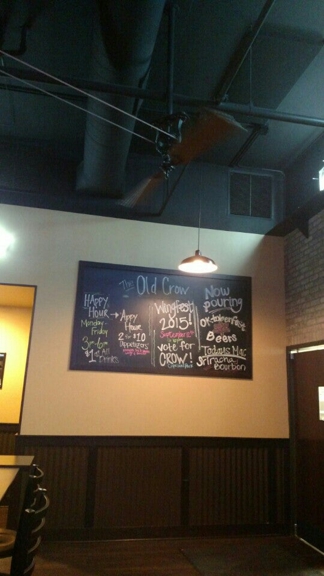 The Old Crow
Happy
Hour →
Monday-
Friday
3pm-6pm
$1 off All
Drinks
Appy
Hour
2 for $10
Appetizers
Wingfest
2015!
vote for
CROW!
Now
pouring
Oktoberfest
Beers
Today's Mac
Sriracha
Bourbon